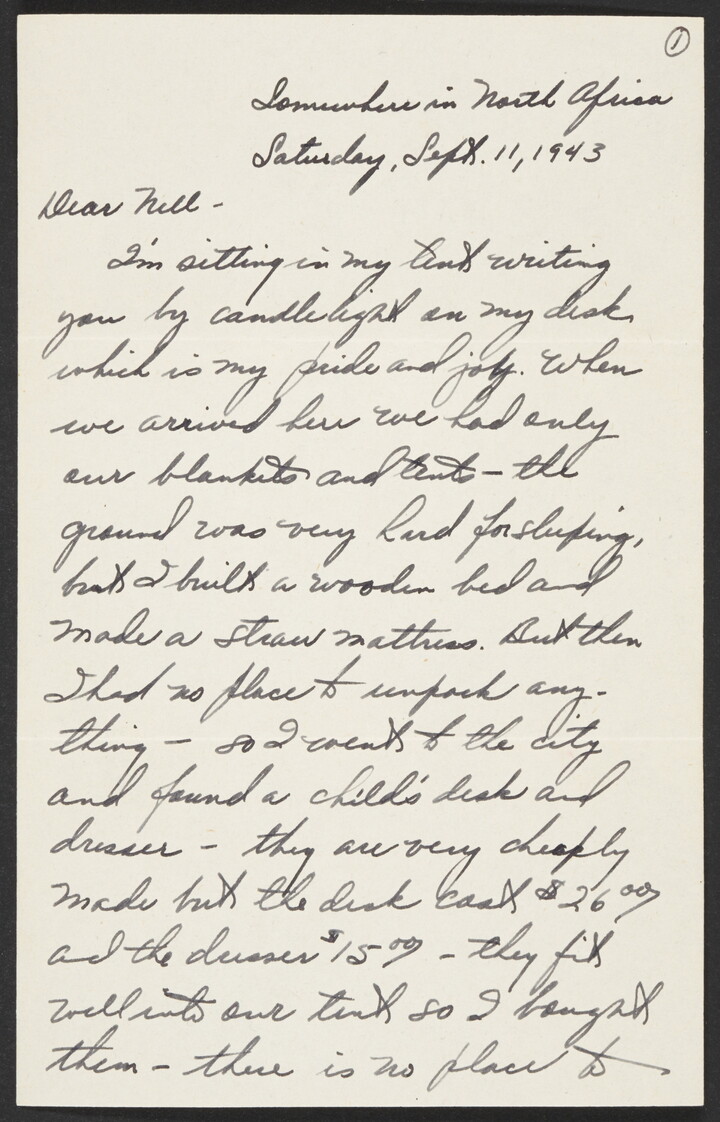 1
Somewhere in North Africa
Saturday, Sept. 11, 1943
Dear Nell -
I'm sitting in my tent writing
you by candlelight on my desk
which is my pride and joy. When
we arrived here we had only
our blankets and tents - the
ground was very hard for sleeping,
but I built a wooden bed and
made a straw mattress. But then
I had no place to unpack any-
thing - so I went to the city
and found a child's desk and
dresser - they are very cheaply
made but the desk cost $26.00
and the dresser $15.00 - they fit
well into our tent so I bought
them - there is no place to